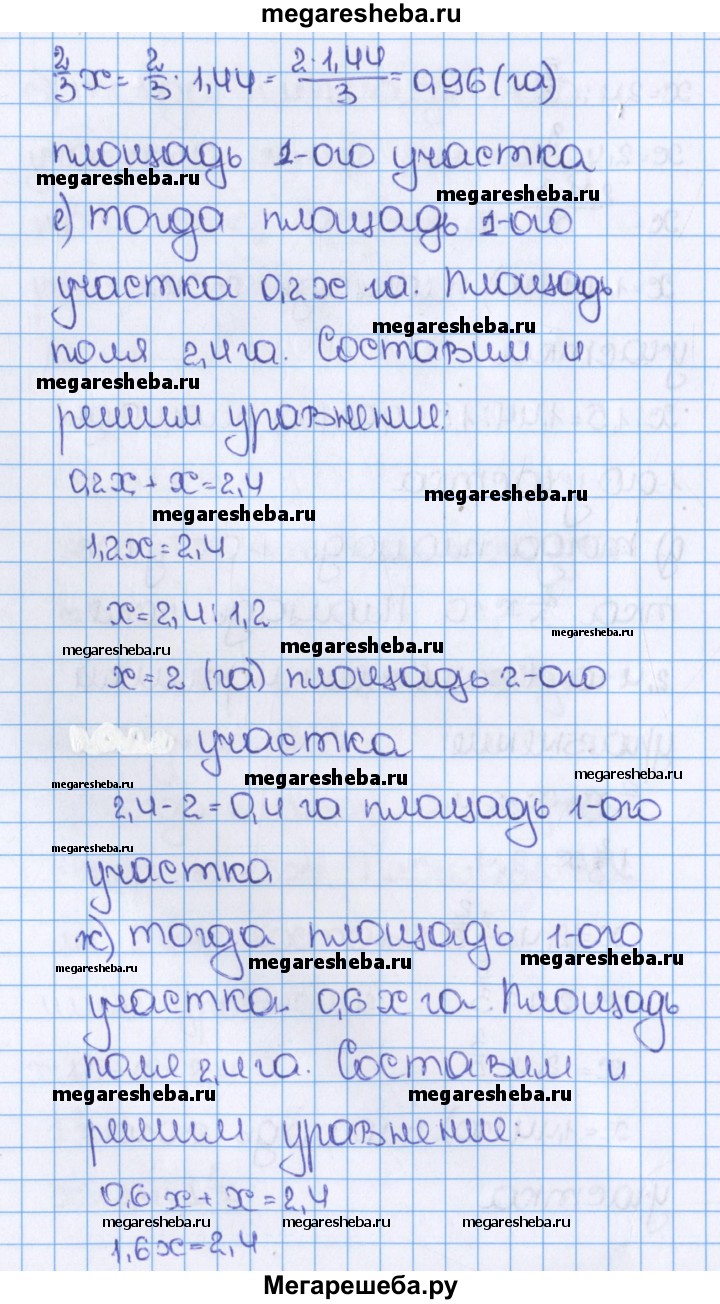 megaresheba.ru
2/3 x = 2/3 · 1,44 = 2·1,44/3 = 0,96 (га)
площадь 1-ого участка
megaresheba.ru megaresheba.ru
е) тогда площадь 1-ого
участка 0,2x га. Площадь
megaresheba.ru
поля 2,4 га. Составим и
megaresheba.ru
решим уравнение:
0,2x + x = 2,4
megaresheba.ru megaresheba.ru
1,2x = 2,4
x = 2,4 : 1,2
megaresheba.ru megaresheba.ru megaresheba.ru
x = 2 (га) площадь 2-ого
участка
megaresheba.ru megaresheba.ru megaresheba.ru
2,4 - 2 = 0,4 га площадь 1-ого
megaresheba.ru
участка
ж) тогда площадь 1-ого
megaresheba.ru megaresheba.ru megaresheba.ru
участка 0,6x га. Площадь
поля 2,4 га. Составим и
megaresheba.ru megaresheba.ru
решим уравнение:
0,6x + x = 2,4
megaresheba.ru megaresheba.ru megaresheba.ru
1,6x = 2,4
Мегарешеба.ру